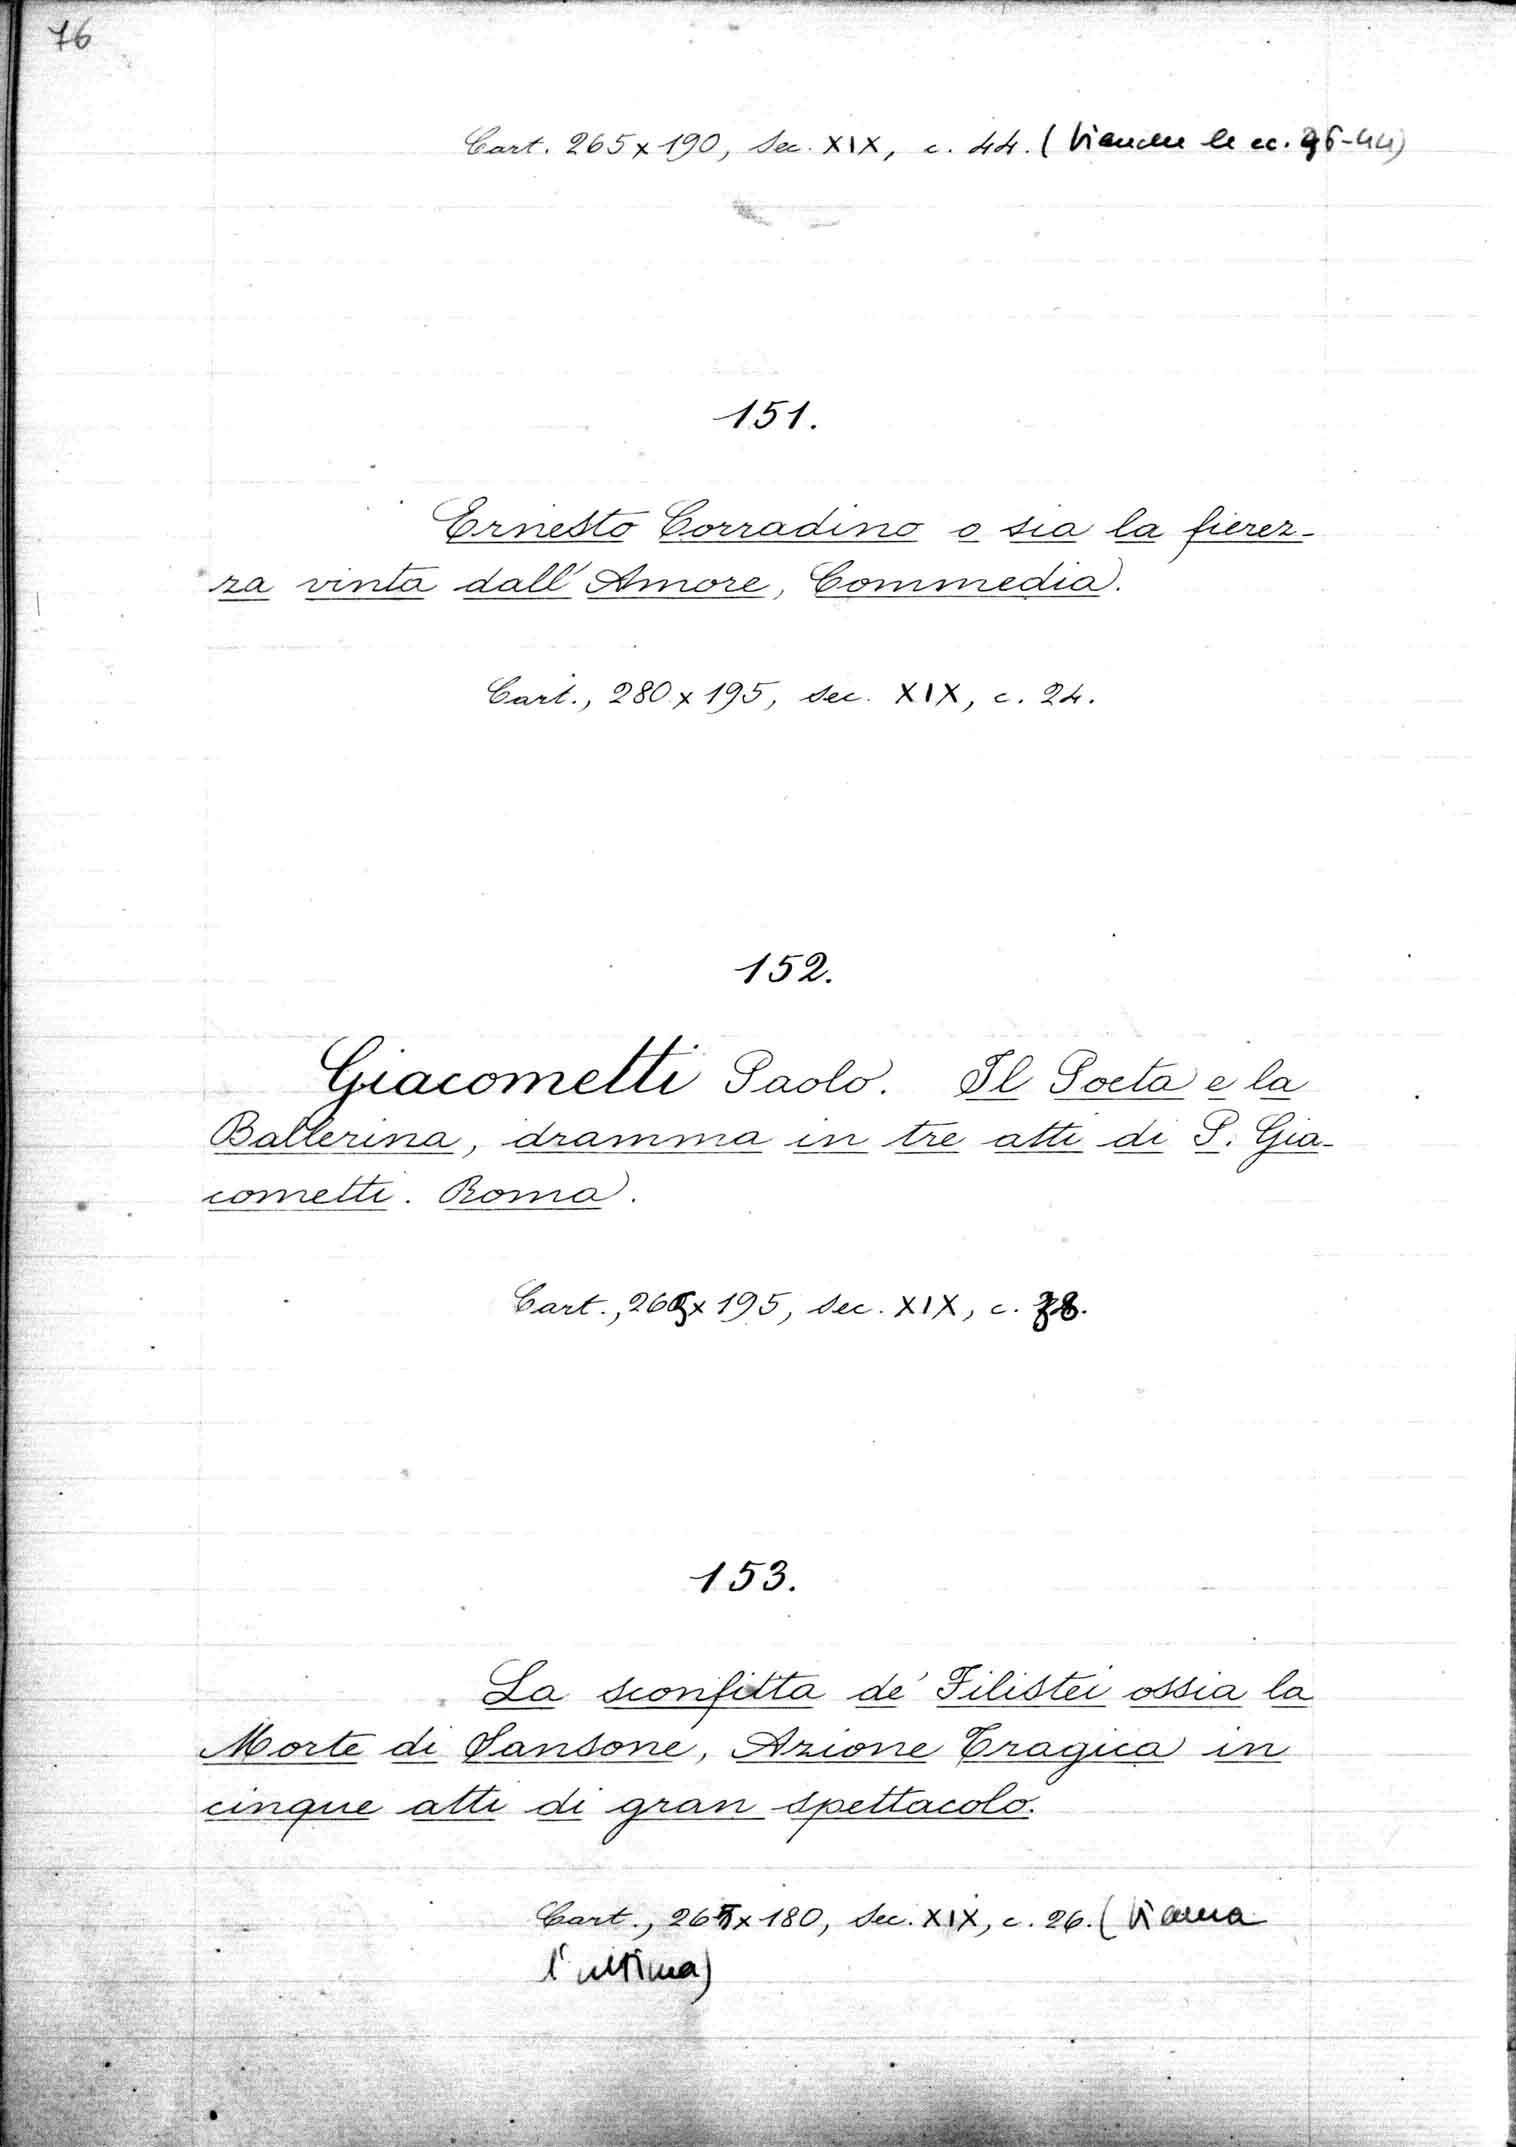 76
Cart. 265 x 190, sec. XIX, c. 44. (bianche le cc. 36-44)
151.
Ernesto Corradino o sia la fierez-
za vinta dall'Amore, Commedia.
Cart., 280 x 195, sec. XIX, c. 24.
152.
Giacometti Paolo. Il Poeta e la
Ballerina, dramma in tre atti di P. Gia-
cometti. Roma.
Cart., 265 x 195, sec. XIX, c.
153.
La sconfitta de' Filistei ossia la
Morte di Sansone, Azione Tragica in
cinque atti di gran spettacolo.
Cart., 265 x 180, sec. XIX, c. 26. (bianca
l'ultima)